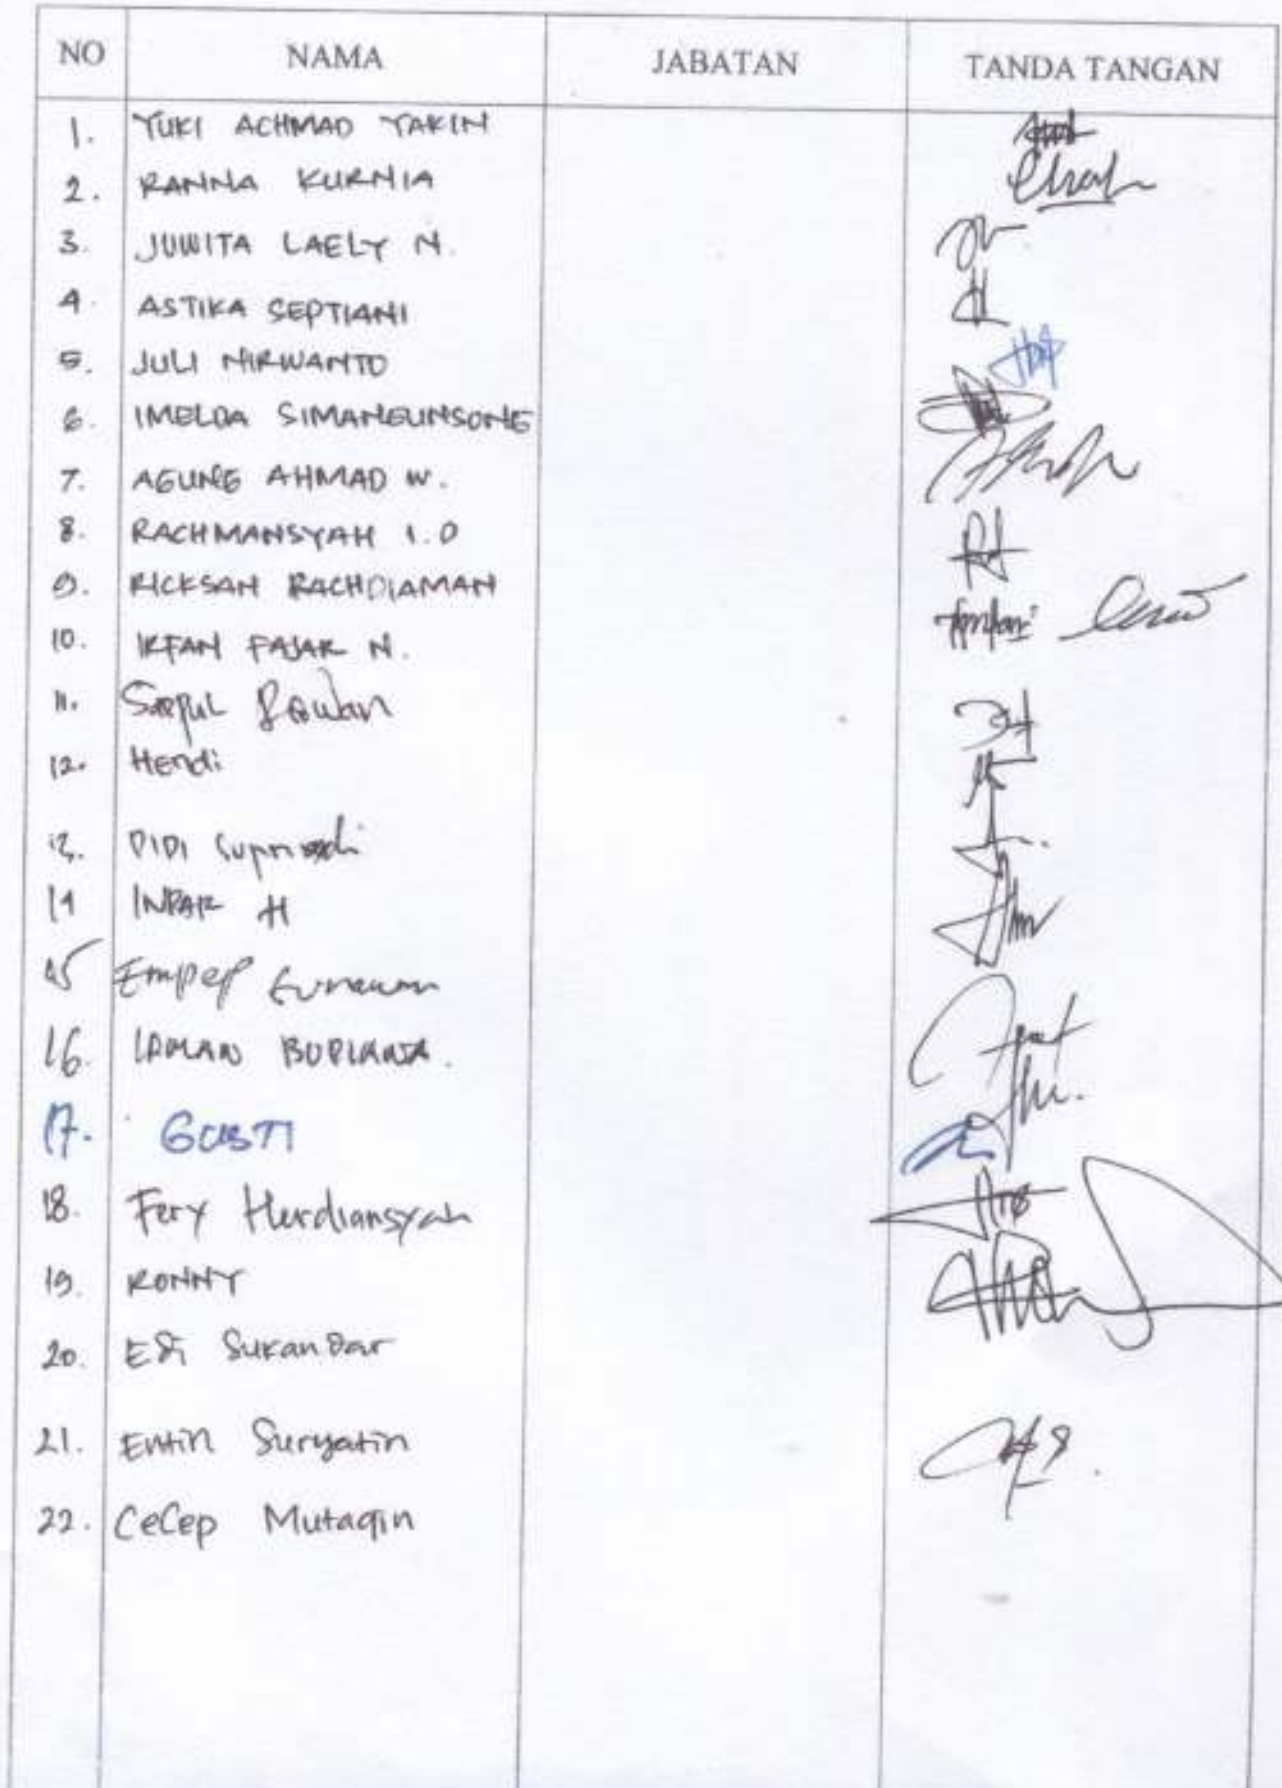 NO NAMA JABATAN TANDA TANGAN
1. YUKI ACHMAD YAKIN
2. RANNA KURNIA
3. JUWITA LAELY N.
4. ASTIKA SEPTIANI
5. JULI NIRWANTO
6. IMELDA SIMANGUNSONG
7. AGUNG AHMAD W.
8. RACHMANSYAH I.D
9. RICKSAN RACHDIAMAN
10. IRFAN FAJAR N.
11.
12. Hendi
13. DIDI Supriadi
14 H
15 Gunawan
16.
17. GUSTI
18. Fery Herdiansyah
19. RONNY
20. Edi Sukandar
21. Entin Suryatin
22. CeCep Mutaqin